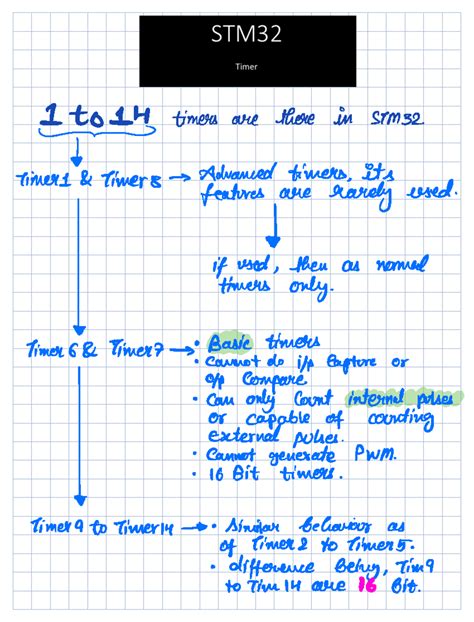 STM32
Timer
1 to 14 timers are there in STM32
Timer 1 & Timer 8 → Advanced timers, it's
features are rarely used.
if used, then as normal
timers only.
Timer 6 & Timer 7 → • Basic timers
• Cannot do i/p Capture or
o/p Compare
• Can only Count internal pulses
or capable of counting
external pulses.
• Cannot generate PWM.
• 16 Bit timers.
Timer 9 to Timer 14 → • Similar behavior as
of Timer 2 to Timer 5.
• difference being, Tim 9
to Tim 14 are 16 Bit.